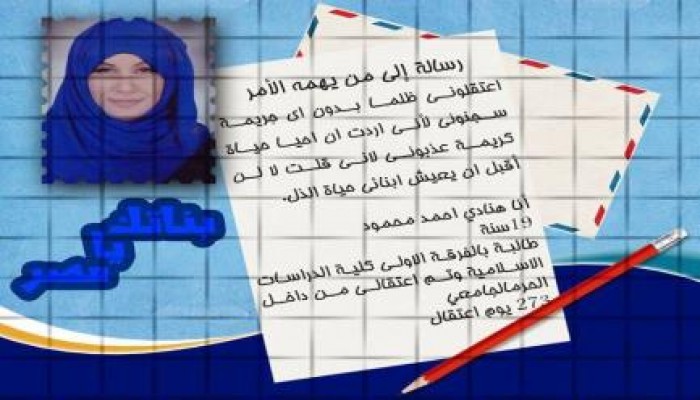 رسالة إلى من يهمه الأمر
اعتقلونى ظلما بدون اى جريمة
سجنونى لأنى اردت ان احيا حياة
كريمة عذبونى لانى قلت لا لن
أقبل ان يعيش ابنائى حياة الذل.
أنا هنادي احمد محمود
19سنة
طالبة بالفرقة الاولى كلية الدراسات
الاسلامية وتم اعتقالى من داخل
الحرم الجامعي
273 يوم اعتقال
بناتك
يا
مصر